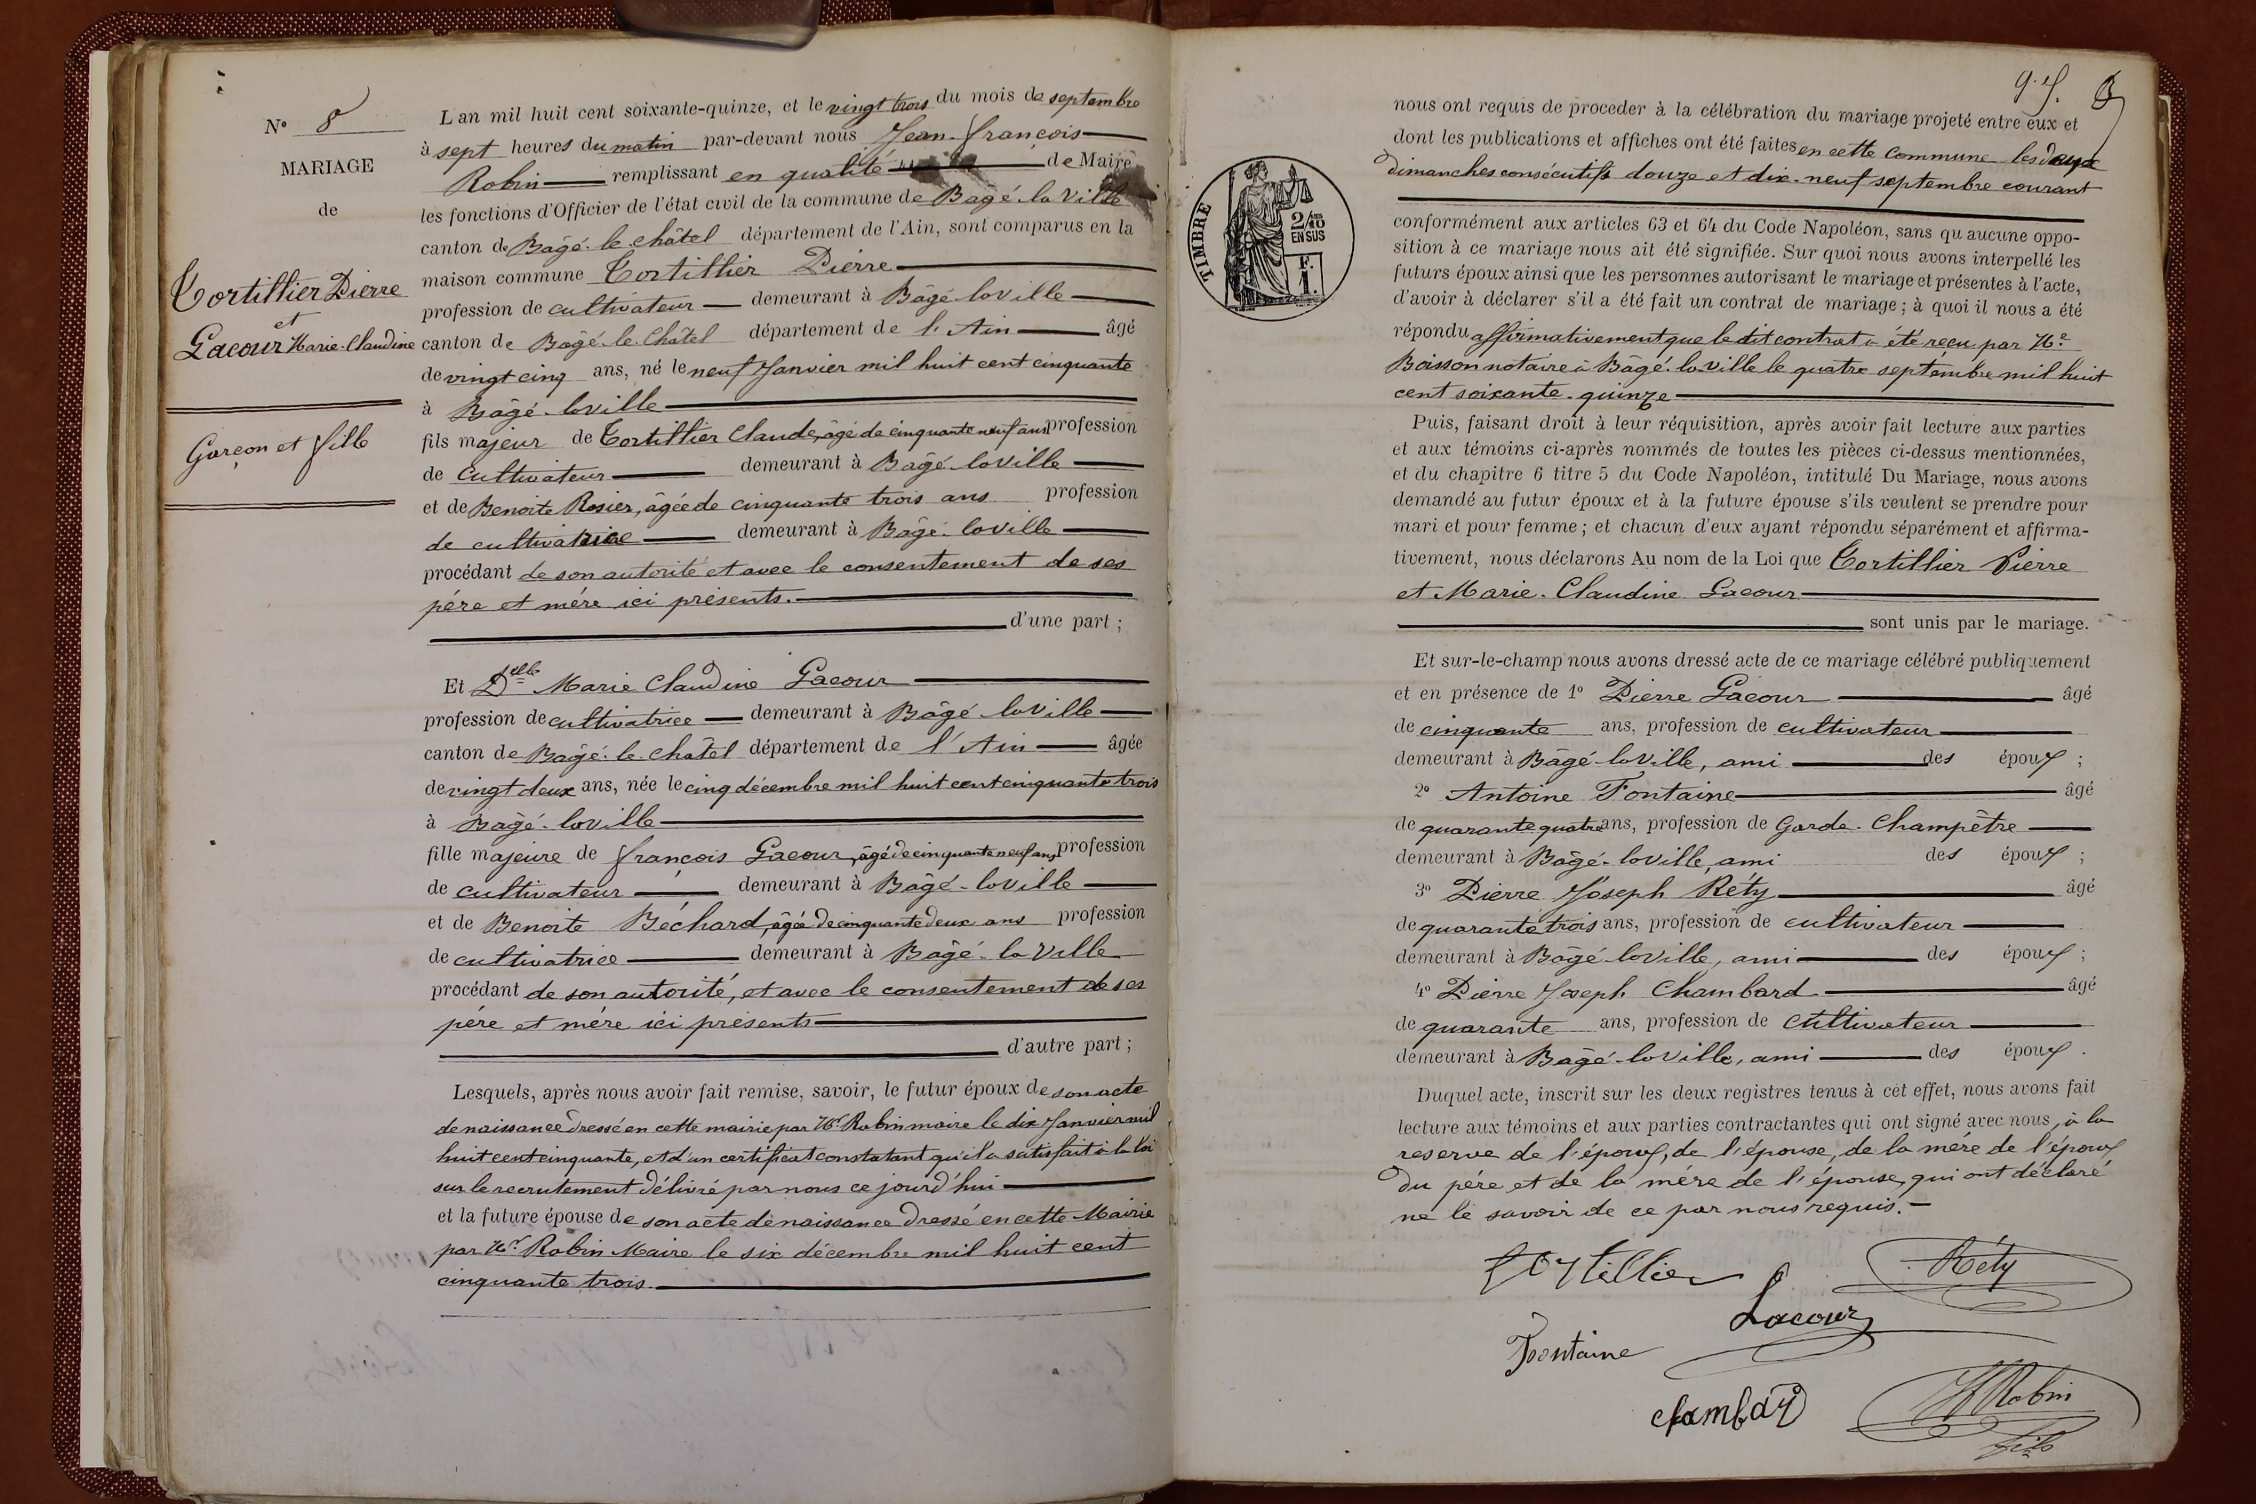 N° 8
MARIAGE
de
Tortillier Pierre
et
Lacour Marie-Claudine
Garçon et fille
L an mil huit cent soixante-quinze, et le vingt trois du mois de septembre
à sept heures du matin par-devant nous Jean-françois
Robin remplissant en qualité de Maire
les fonctions d'Officier de l'état civil de la commune de Bâgé-la Ville
canton de Bâgé-le-Châtel département de l'Ain, sont comparus en la
maison commune Tortillier Pierre
profession de cultivateur demeurant à Bâgé-laville
canton de Bâgé-le-Châtel département de l'Ain âgé
de vingt cinq ans, né le neuf Janvier mil huit cent cinquante
à Bâgé-laville
fils majeur de Tortillier Claude, âgé de cinquante neuf ans profession
de cultivateur demeurant à Bâgé-laville
et de Benoite Rosier, âgée de cinquante trois ans profession
de cultivatrice demeurant à Bâgé-laville
procédant de son autorité et avec le consentement de ses
père et mère ici présents.
d'une part ;
Et Delle Marie Claudine Lacour
profession de cultivatrice demeurant à Bâgé laville
canton de Bâgé-le-Châtel département de l'Ain âgée
de vingt deux ans, née le cinq décembre mil huit cent cinquante trois
à Bâgé-laville
fille majeure de françois Lacour, âgé de cinquante neuf ans profession
de cultivateur demeurant à Bâgé-laville
et de Benoite Béchard, âgée de cinquante deux ans profession
de cultivatrice demeurant à Bâgé-la Ville
procédant de son autorité, et avec le consentement de ses
père et mère ici présents
d'autre part ;
Lesquels, après nous avoir fait remise, savoir, le futur époux de son acte
de naissance dressé en cette mairie par Mr Robin maire le dix Janvier mil
huit cent cinquante, et d'un certificat constatant qu'il a satisfait à la loi
sur le recrutement délivré par nous ce jourd'hui
et la future épouse de son acte de naissance dressé en cette Mairie
par Mr Robin Maire le six décembre mil huit cent
cinquante trois.
TIMBRE
2/10 ES
EN SUS
F.
1.
nous ont requis de proceder à la célébration du mariage projeté entre eux et
dont les publications et affiches ont été faites en cette commune les deux
dimanches consécutifs douze et dix-neuf septembre courant
conformément aux articles 63 et 64 du Code Napoléon, sans qu aucune oppo-
sition à ce mariage nous ait été signifiée. Sur quoi nous avons interpellé les
futurs époux ainsi que les personnes autorisant le mariage et présentes à l'acte,
d'avoir à déclarer s'il a été fait un contrat de mariage ; à quoi il nous a été
répondu affirmativement que le dit contrat a été reçu par Me
Boisson notaire à Bâgé-la-ville le quatre septembre mil huit
cent soixante-quinze
Puis, faisant droit à leur réquisition, après avoir fait lecture aux parties
et aux témoins ci-après nommés de toutes les pièces ci-dessus mentionnées,
et du chapitre 6 titre 5 du Code Napoléon, intitulé Du Mariage, nous avons
demandé au futur époux et à la future épouse s'ils veulent se prendre pour
mari et pour femme ; et chacun d'eux ayant répondu séparément et affirma-
tivement, nous déclarons Au nom de la Loi que Tortillier Pierre
et Marie-Claudine Lacour
sont unis par le mariage.
Et sur-le-champ nous avons dressé acte de ce mariage célébré publiquement
et en présence de 1° Pierre Lacour âgé
de cinquante ans, profession de cultivateur
demeurant à Bâgé-laville, ami des époux ;
2° Antoine Fontaine âgé
de quarante quatre ans, profession de Garde-Champêtre
demeurant à Bâgé-laville, ami des époux ;
3° Pierre Joseph Réty âgé
de quarante trois ans, profession de cultivateur
demeurant à Bâgé-laville, ami des époux ;
4° Pierre Joseph Chambard âgé
de quarante ans, profession de cultivateur
demeurant à Bâgé-laville, ami des époux.
Duquel acte, inscrit sur les deux registres tenus à cet effet, nous avons fait
lecture aux témoins et aux parties contractantes qui ont signé avec nous, à la
reserve de l'époux, de l'épouse, de la mère de l'époux
du père et de la mère de l'épouse, qui ont déclaré
ne le savoir de ce par nous requis.
Tortillier
Réty
Lacour
Fontaine
chambard
Robin
fils